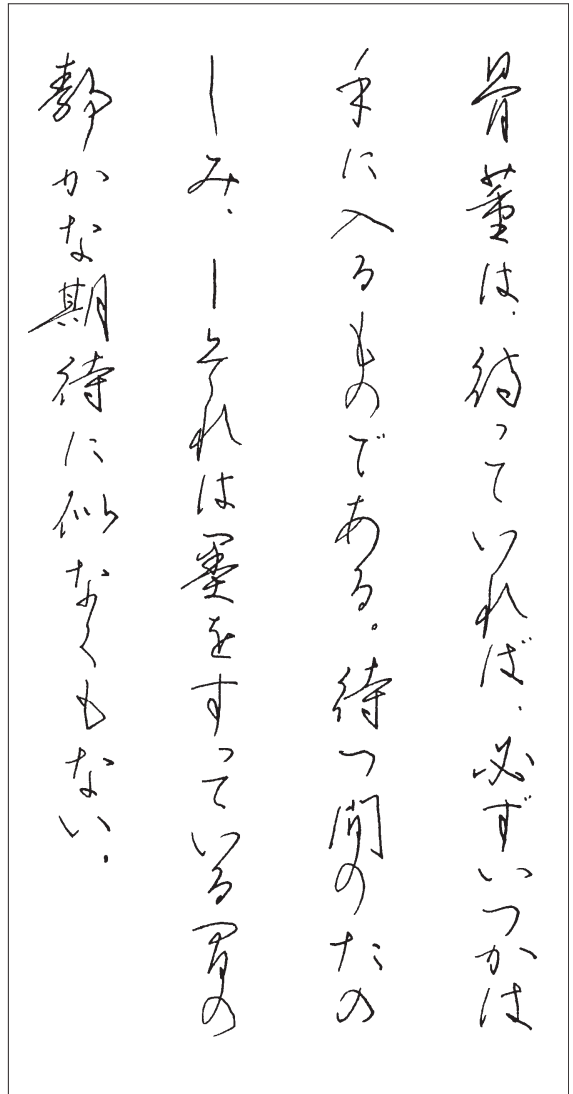 骨董は、待っていれば、必ずいつかは
手に入るものである。待つ間のたの
しみ、―それは墨をすっている間の
静かな期待に似なくもない。